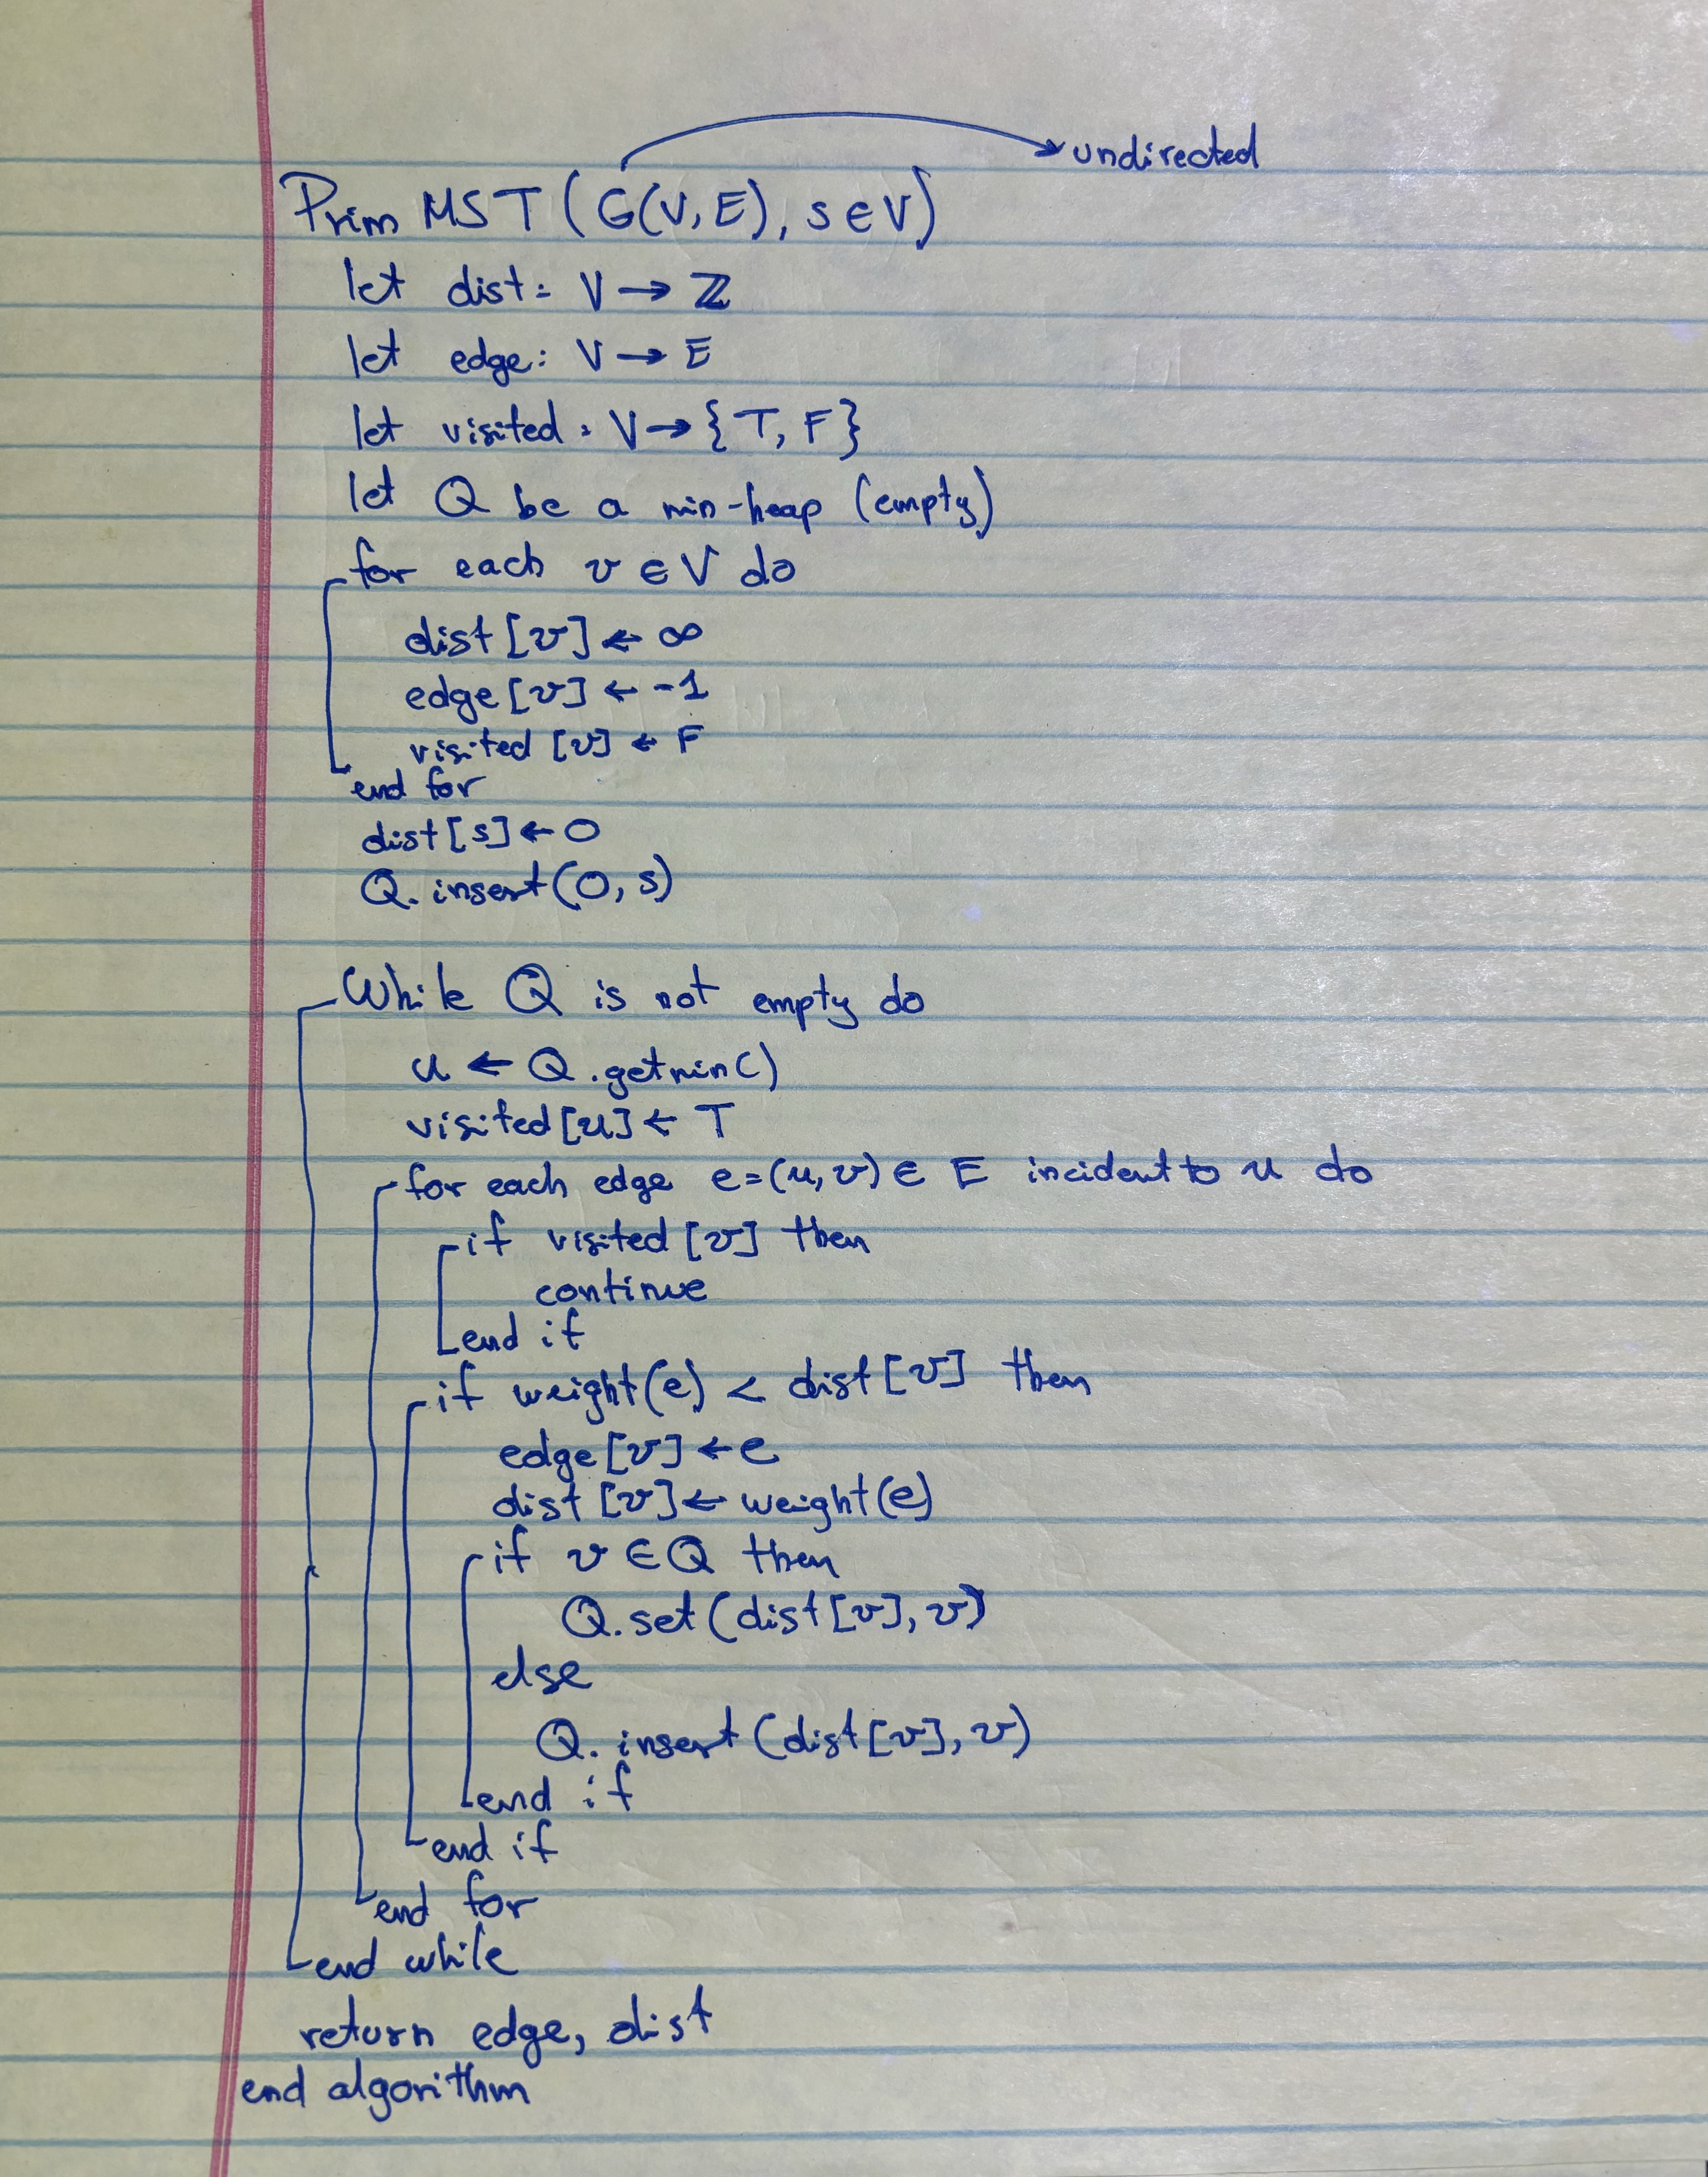 undirected
Prim MST (G(V,E), s∈V)
let dist: V → ℤ
let edge: V → E
let visited: V → {T, F}
let Q be a min-heap (empty)
for each v ∈ V do
dist[v] ← ∞
edge[v] ← -1
visited [v] ← F
end for
dist[s] ← 0
Q.insert(0, s)
While Q is not empty do
u ← Q.getmin()
visited[u] ← T
for each edge e=(u,v) ∈ E incident to u do
if visited [v] then
continue
end if
if weight(e) < dist[v] then
edge[v] ← e
dist [v] ← weight(e)
if v ∈ Q then
Q.set(dist[v], v)
else
Q.insert(dist[v], v)
end if
end if
end for
end while
return edge, dist
end algorithm